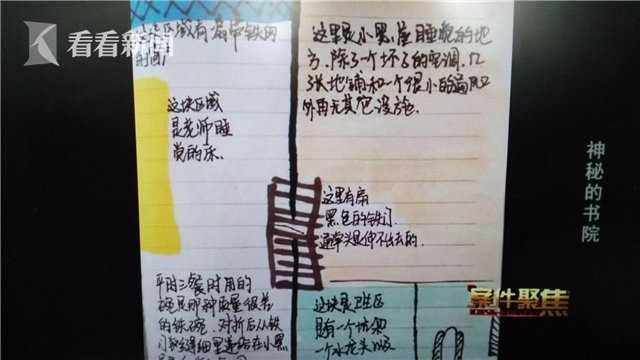 看看新闻
区域有一扇带铁网
的窗户
这块区域
是老师睡
觉的床.
这里是小黑屋睡觉的地
方.除了一个坏了的空调.几
张地铺和一个很小的扇风口
外再无其它设施.
这里有扇
黑色的铁门.
通常头是伸不出去的.
平时三餐时用的
碗是那种质量很差
的铁碗.对折后从铁
门
递给在小黑
这块是卫生区
只有一个坑和
一个水龙头
神秘的书院
案件聚焦